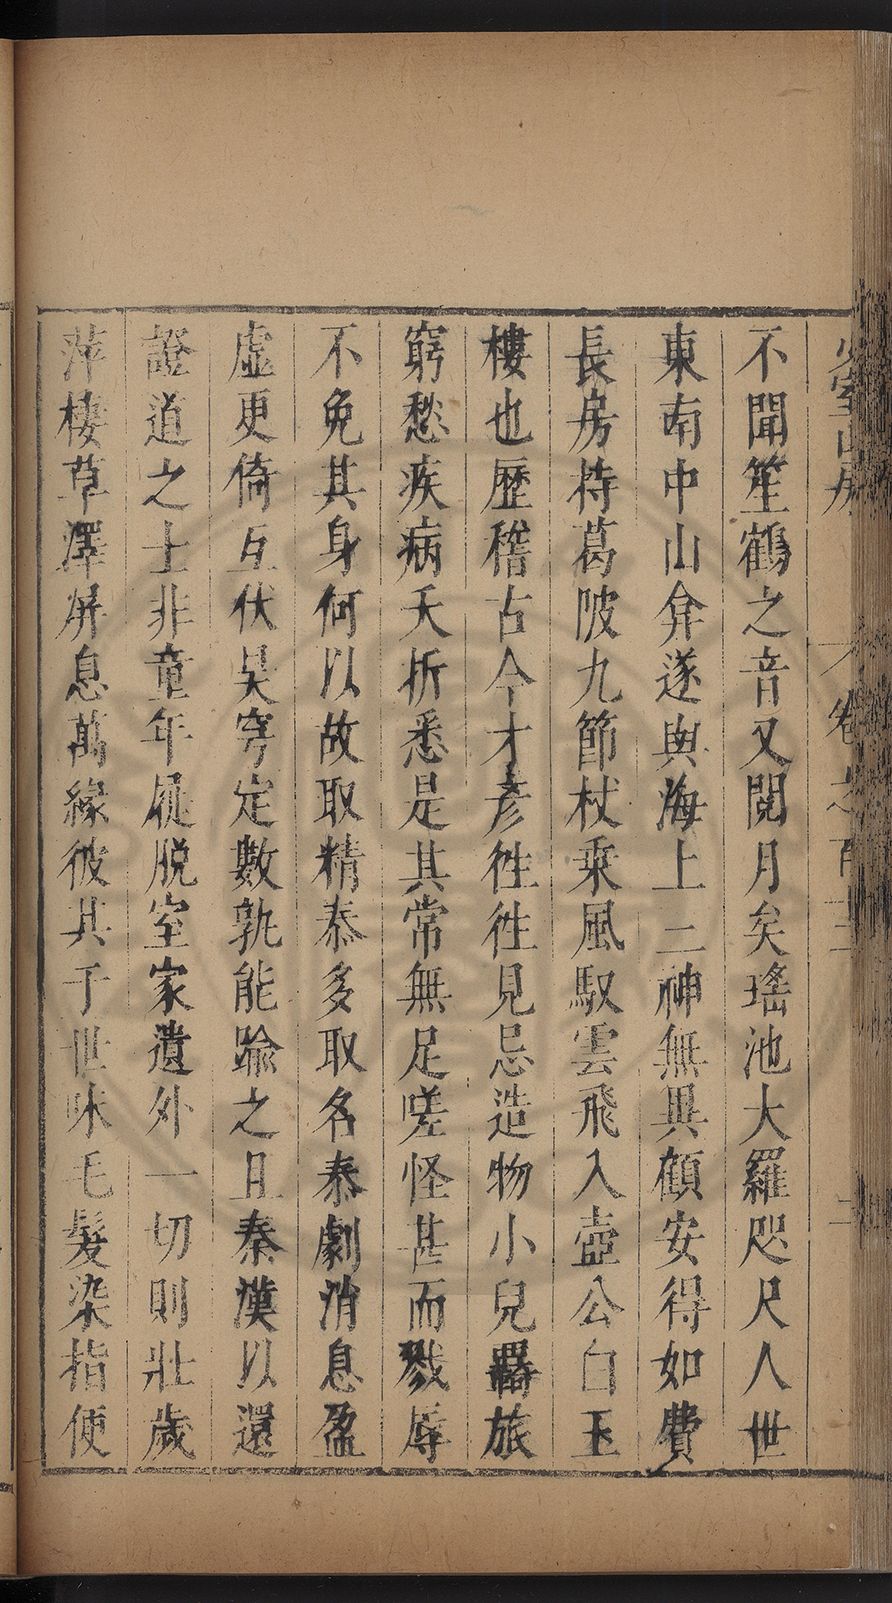 少室山房 卷之百十三 二
不聞笙鶴之音又閱月矣瑤池大羅咫尺人世
東南中山弇遂與海上二神無異顧安得如費
長房持葛陂九節杖乗風馭雲飛入壺公白玉
樓也歷稽古今才彥徃徃見忌造物小兒羇旅
窮愁疾病夭折悉是其常無足嗟怪甚而戮辱
不免其身何以故取精泰多取名泰劇消息盈
虛更倚互伏昊穹定數孰能踰之且秦漢以還
證道之士非童年屣脫室家遺外一切則壯歲
萍棲草澤屏息萬緣彼其于世味毛髮染指便